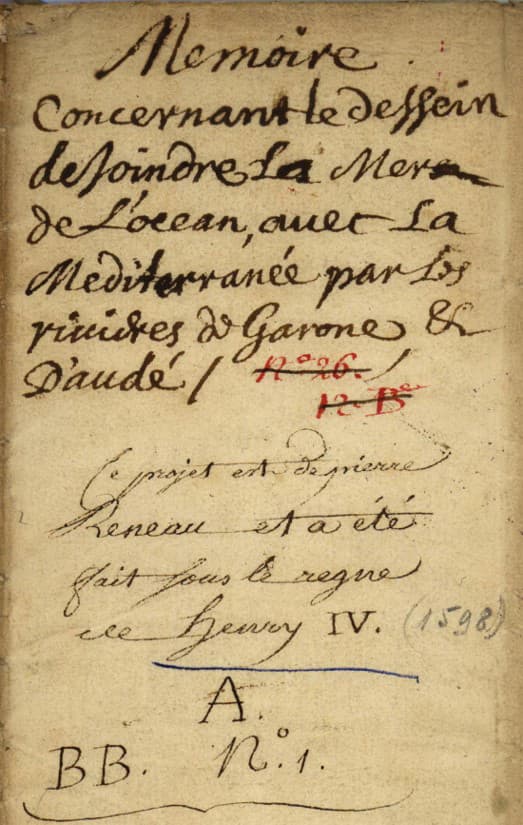 Memoire
Concernant le dessein
de Joindre La Mer
de L'ocean, avec La
Mediterranée par Les
rivieres de Garone &
D'audé /
N.° 26. /
12. B.e
Ce projet est de pierre
Reneau et a été
fait sous le regne
de henry IV. (1598)
A.
BB. N.° 1.